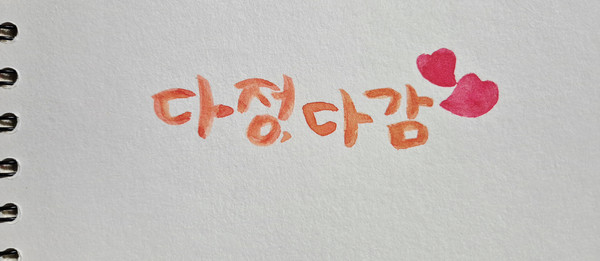 다정, 다감